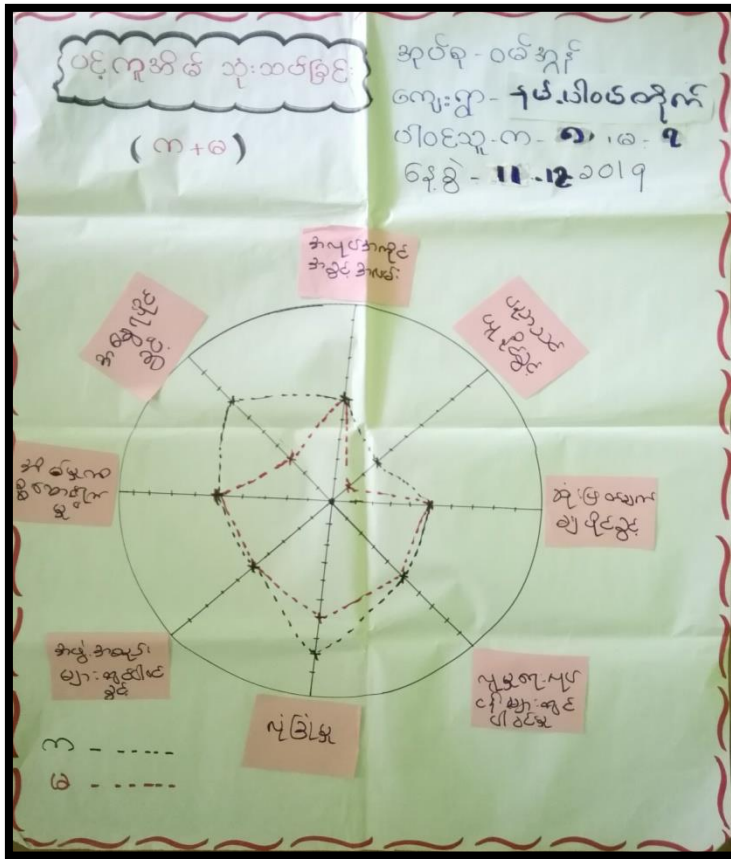 ပင့်ကူအိမ် သုံးသပ်ခြင်း
(က+မ)
အုပ်စု - ဝမ်အွန်
ကျေးရွာ - နမ့်ပါဝယ်တိုက်
ပါဝင်သူ - က - ၈၊ မ - ၇
နေ့စွဲ - 11.12.2019
အလုပ်အကိုင်
အခွင့်အလမ်း
ပညာသင်
ယူပိုင်ခွင့်
ဆုံးဖြတ်ချက်
ချပိုင်ခွင့်
လူမှုရေးလုပ်
ငန်းများတွင်
ပါဝင်မှု
လုံခြုံမှု
အဖွဲ့အစည်း
များတွင်ပါဝင်
ခွင့်
အိမ်မှုကိစ္စ
ဆောင်ရွက်
မှု
အမွေပိုင်
ဆိုင်မှု
က - ------
မ - ------